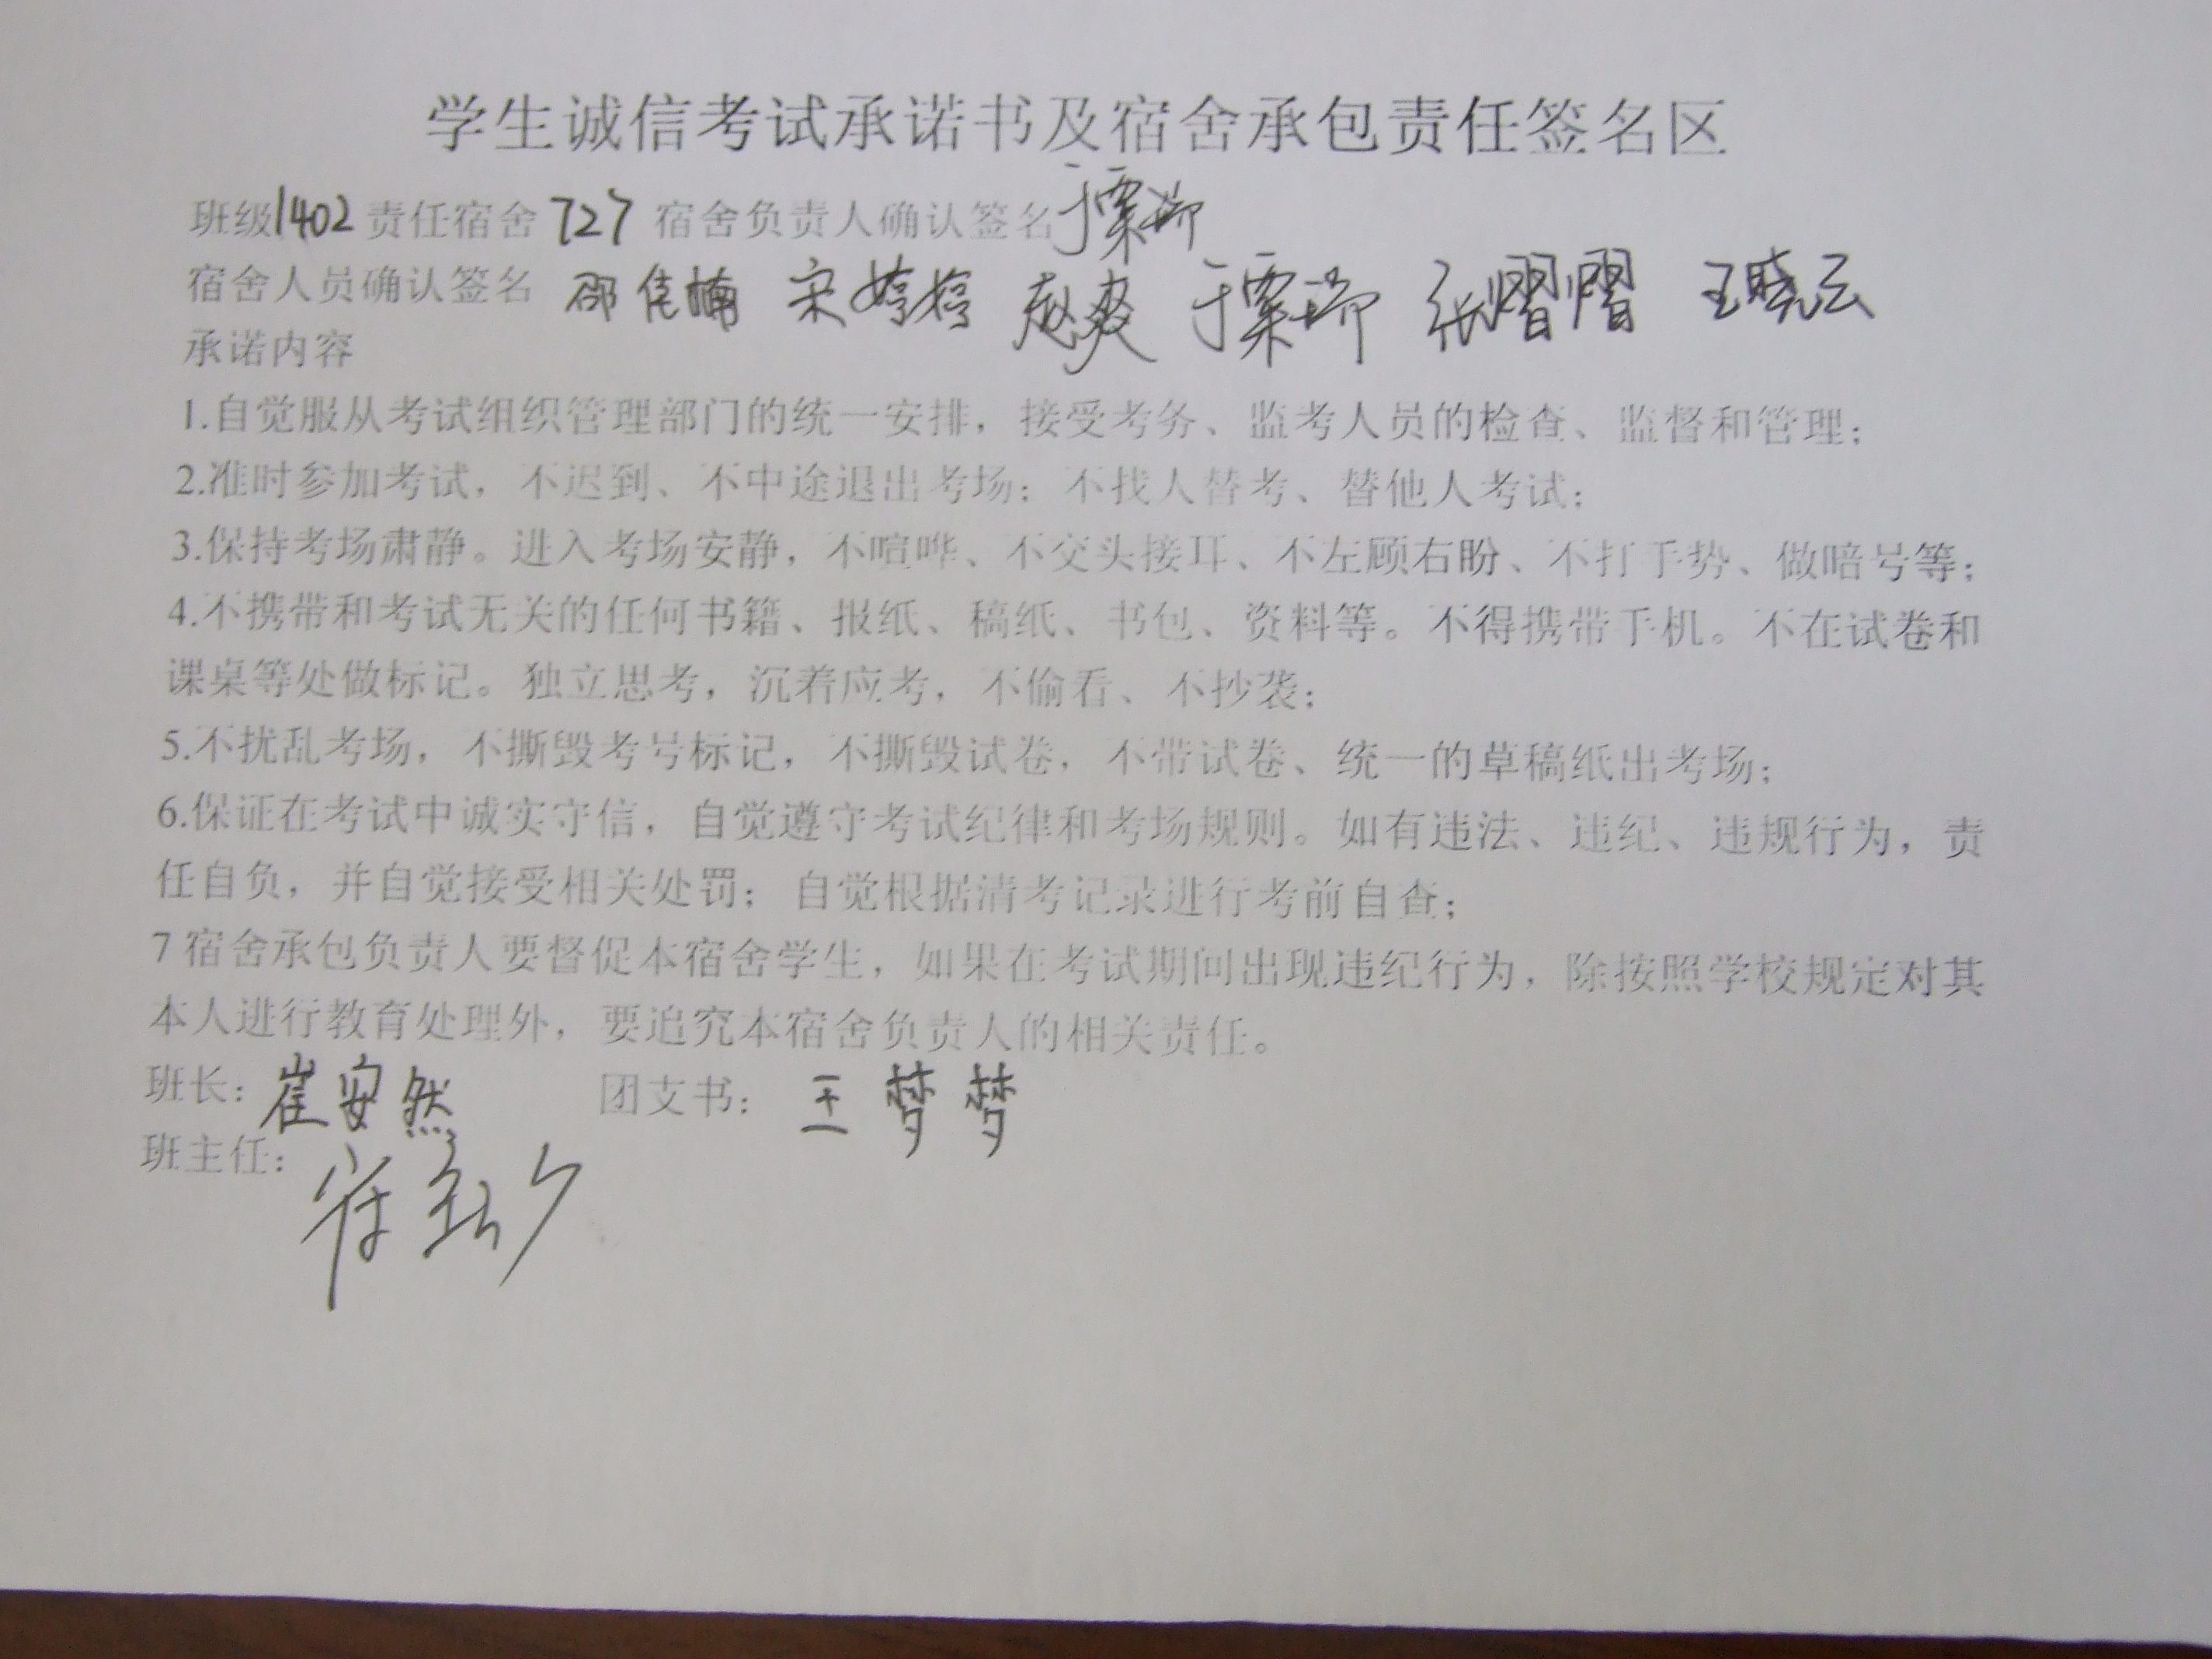 学生诚信考试承诺书及宿舍承包责任签名区
班级1402责任宿舍727 宿舍负责人确认签名于
宿舍人员确认签名 邵佳楠 宋婷婷 赵爽 于 张熠熠 王晓云
承诺内容
1.自觉服从考试组织管理部门的统一安排，接受考务、监考人员的检查、监督和管理；
2.准时参加考试，不迟到、不中途退出考场；不找人替考、替他人考试；
3.保持考场肃静。进入考场安静，不喧哗、不交头接耳、不左顾右盼、不打手势、做暗号等；
4.不携带和考试无关的任何书籍、报纸、稿纸、书包、资料等。不得携带手机。不在试卷和
课桌等处做标记。独立思考，沉着应考，不偷看、不抄袭；
5.不扰乱考场，不撕毁考号标记，不撕毁试卷，不带试卷、统一的草稿纸出考场；
6.保证在考试中诚实守信，自觉遵守考试纪律和考场规则。如有违法、违纪、违规行为，责
任自负，并自觉接受相关处罚；自觉根据清考记录进行考前自查；
7宿舍承包负责人要督促本宿舍学生，如果在考试期间出现违纪行为，除按照学校规定对其
本人进行教育处理外，要追究本宿舍负责人的相关责任。
班长：崔安然 团支书：王梦梦
班主任：